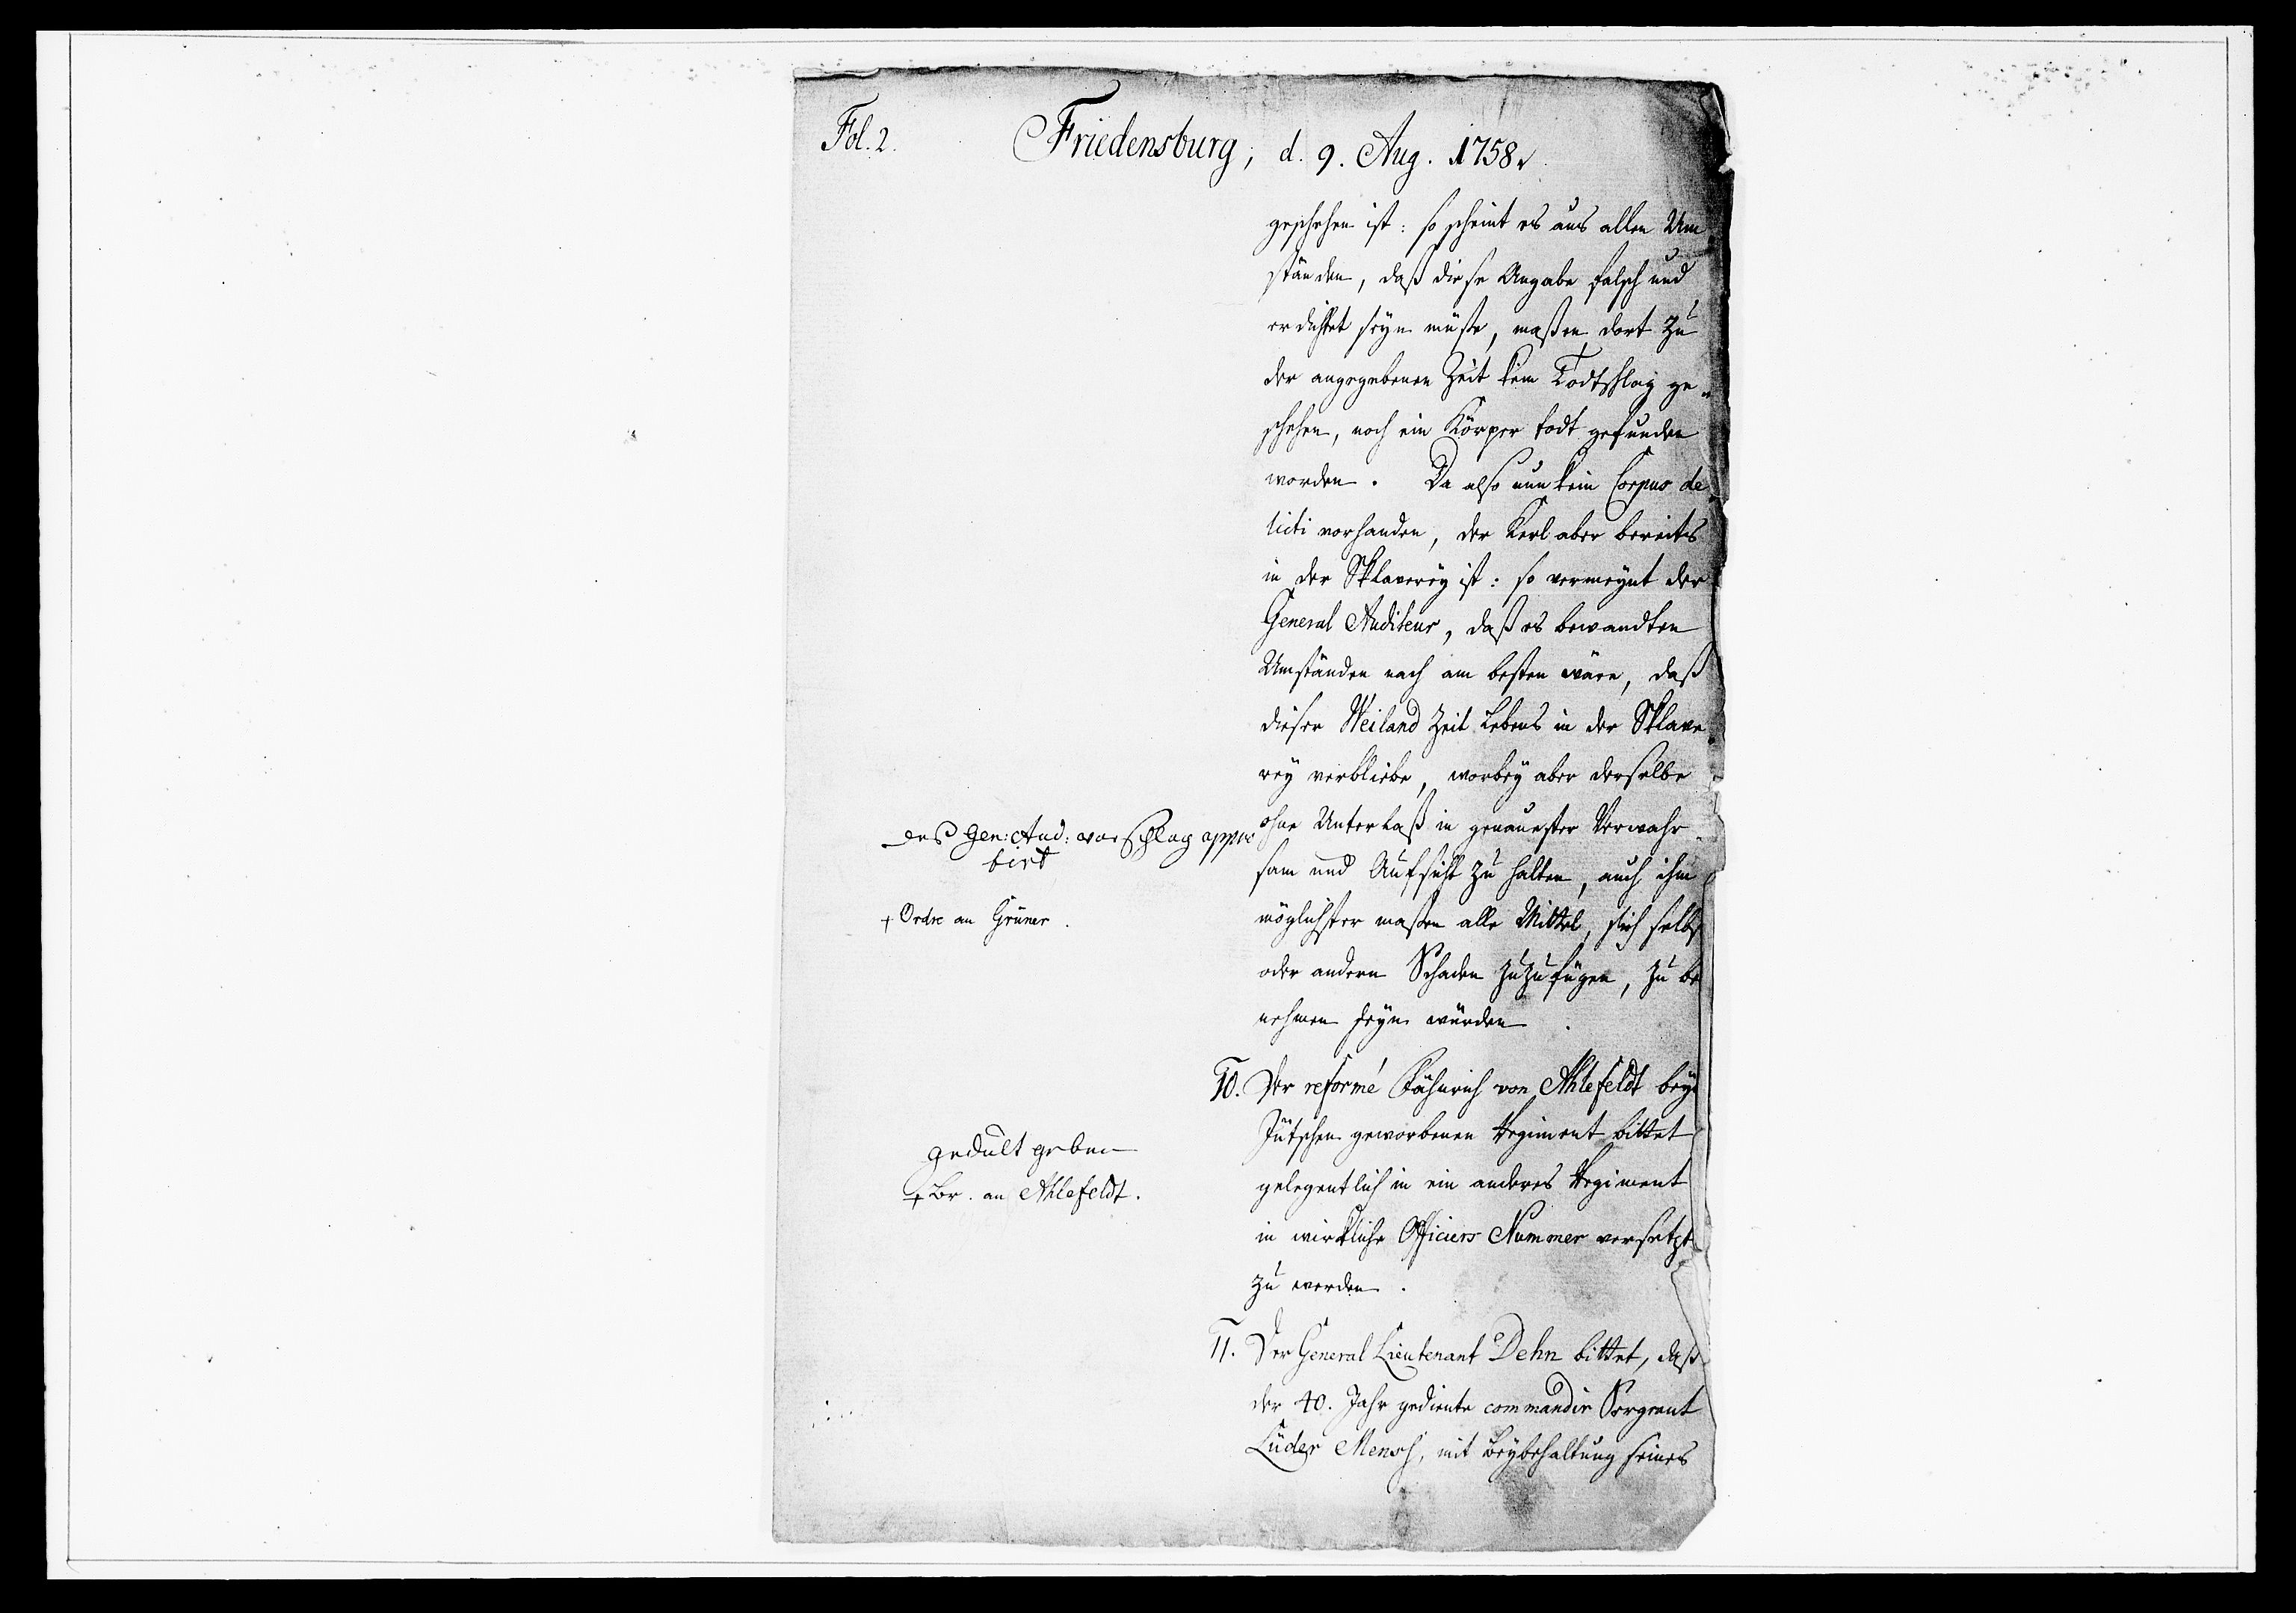 Fol. 2. Friedensburg, d. 9. Aug. 1758.
geschehen ist: so scheint es aus allen Um-
ständen, daß diese Angabe falsch und
erdichtet seyn müße, maßen dort zu
der angegebenen Zeit kein Todtschlag ge-
schehen, noch ein Körper todt gefunden
worden. Da also nun kein Corpus de-
licti vorhanden, der Kerl aber bereits
in der Sklaverey ist: so vermeynt der
General Auditeur, daß es bewandten
Umständen nach am besten wäre, daß
dieser Weiland Zeit Lebens in der Sklave-
rey verbliebe, worbey aber derselbe
ohne Unterlaß in genauester Verwahr-
sam und Aufsicht zu halten, auch ihm
möglichster maßen alle Mittel, sich selbst
oder andern Schaden zuzufügen, zu be-
nehmen seyn würden.
des Gen: Aud: vorschlag appro
birt
+ Ordre an Grüner.
10. Der reformé Fähnrich von Ahlefeldt beym
Jütschen geworbenen Regiment bittet
gelegentlich in ein anderes Regiment
in wirkliche Officiers Nummer versetzt
zu werden.
gedult geben
+ Br. an Ahlefeldt.
11. Der General Lieutenant Dehn bittet, daß
der 40. Jahr gediente commandir Sergeant
Lüder Mensch, mit Beybehaltung seines